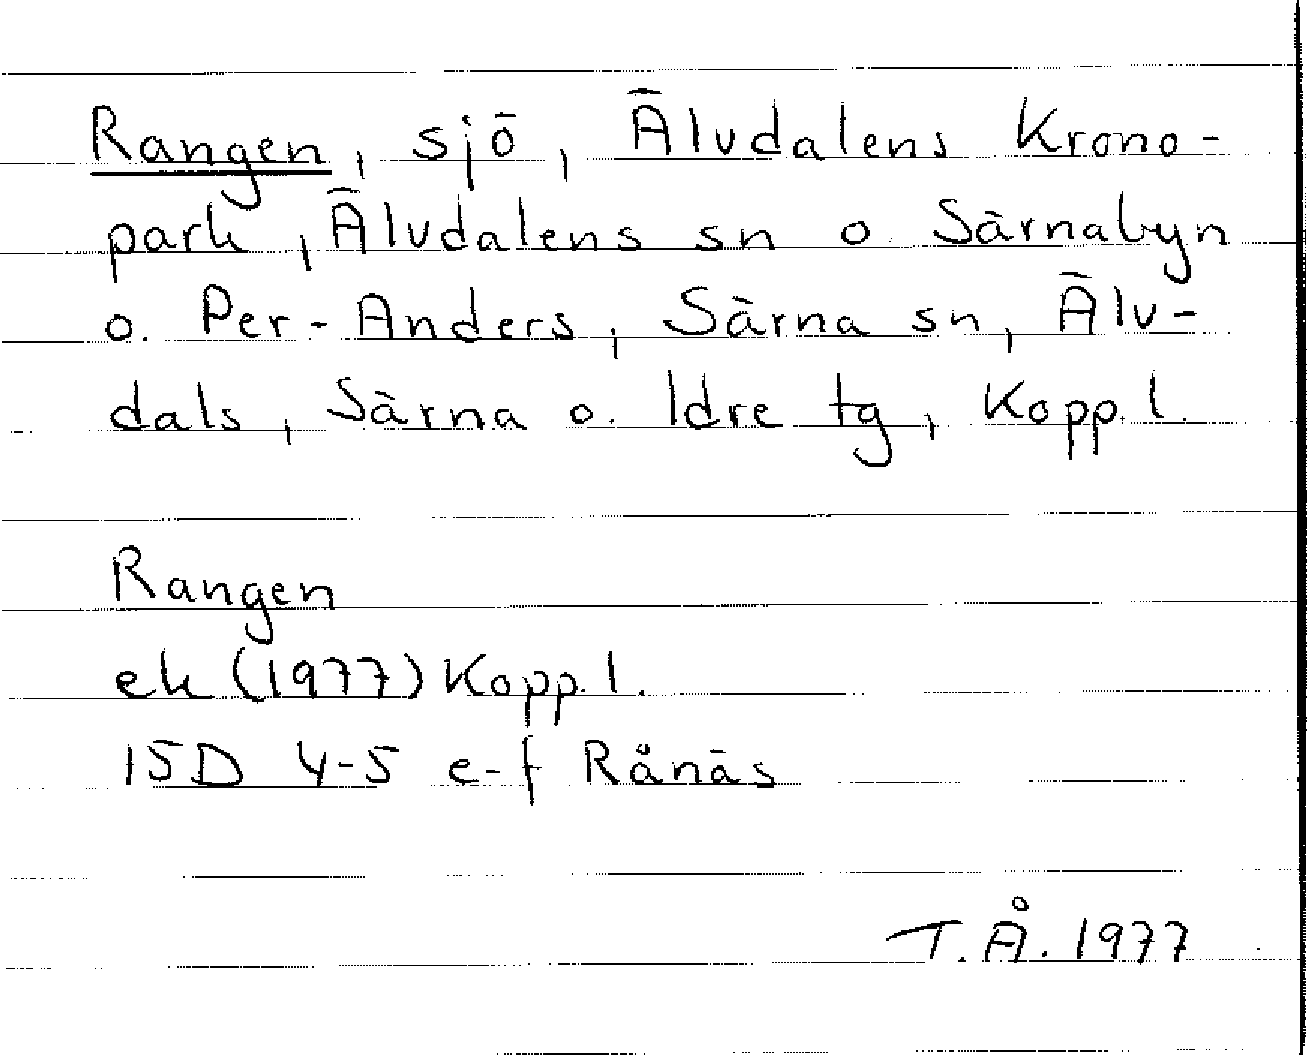 Rangen, sjö, Älvdalens Krono-
park, Älvdalens sn o Särnabyn
o. Per-Anders, Särna sn, Älv-
dals, Särna o. Idre tg, Kopp. l.
Rangen
ek (1977) Kopp. l.
15D 4-5 e-f Rånäs
T.Å. 1977